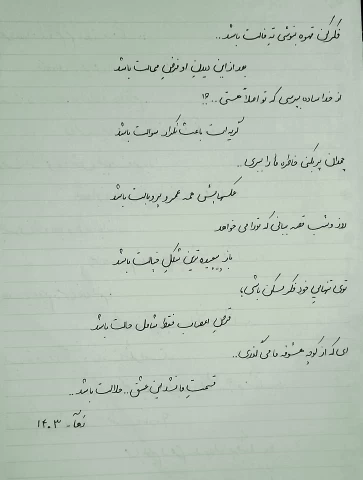 فکر کن قهوه بنوشی ته فالت باشد..
بعد از این دیدن او فرض محالت باشد
از خدا ساده بپرسی که تو اصلاً هستی..؟!
گریه ات باعث تکرار سوالت باشد
چمدان پر کنی خاطره ها را ببری..
عکسهایش همه عمر وبالت باشد
روز و شب قصه ببافی که تو را می خواهد
باز پیچیده ترین شکل خیالت باشد
توی تنهایی خود فکر مسکن باشی؛
قرص اعصاب فقط شامل حالت باشد
ای که از کوچه معشوقه ما می گذری..
قسمت ما نشد این عشق.. حلالت باشد..
۱۴۰۳